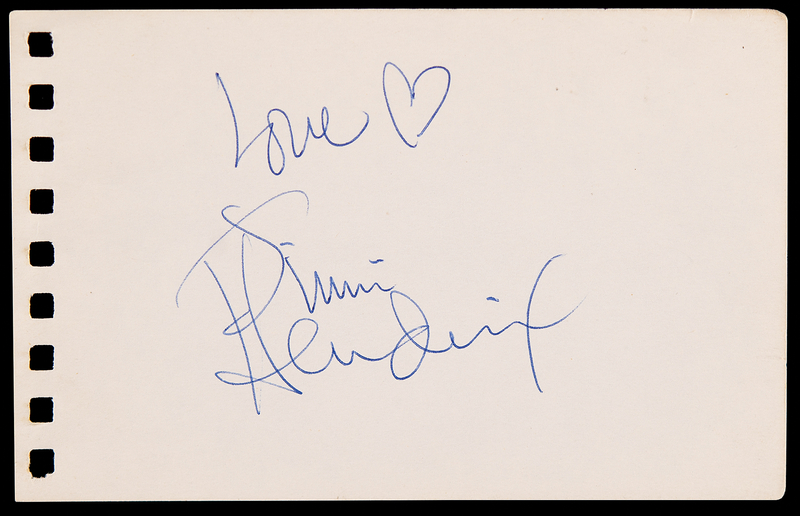 Love ♡
Jimi
Hendrix